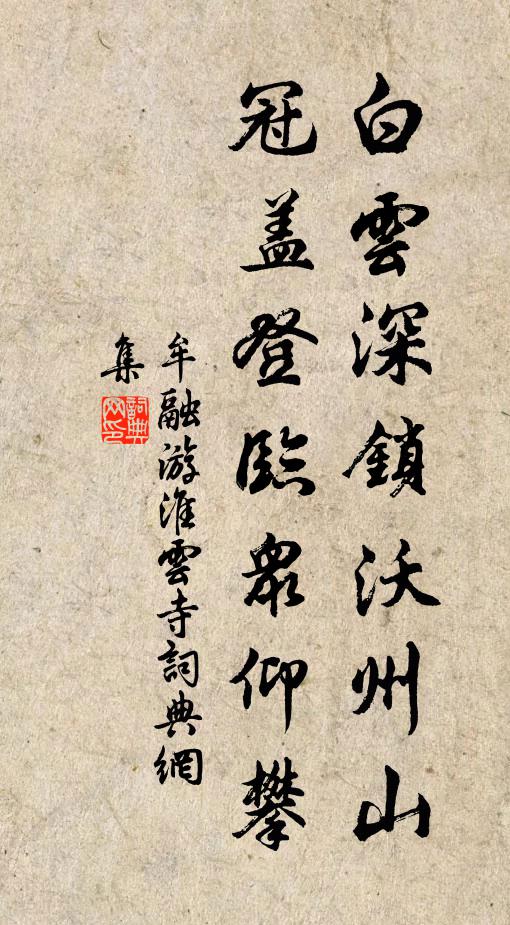 白雲深鎖沃州山
冠盖登臨眾仰攀
牟融游淮雲寺詞典網
集
詞典网印